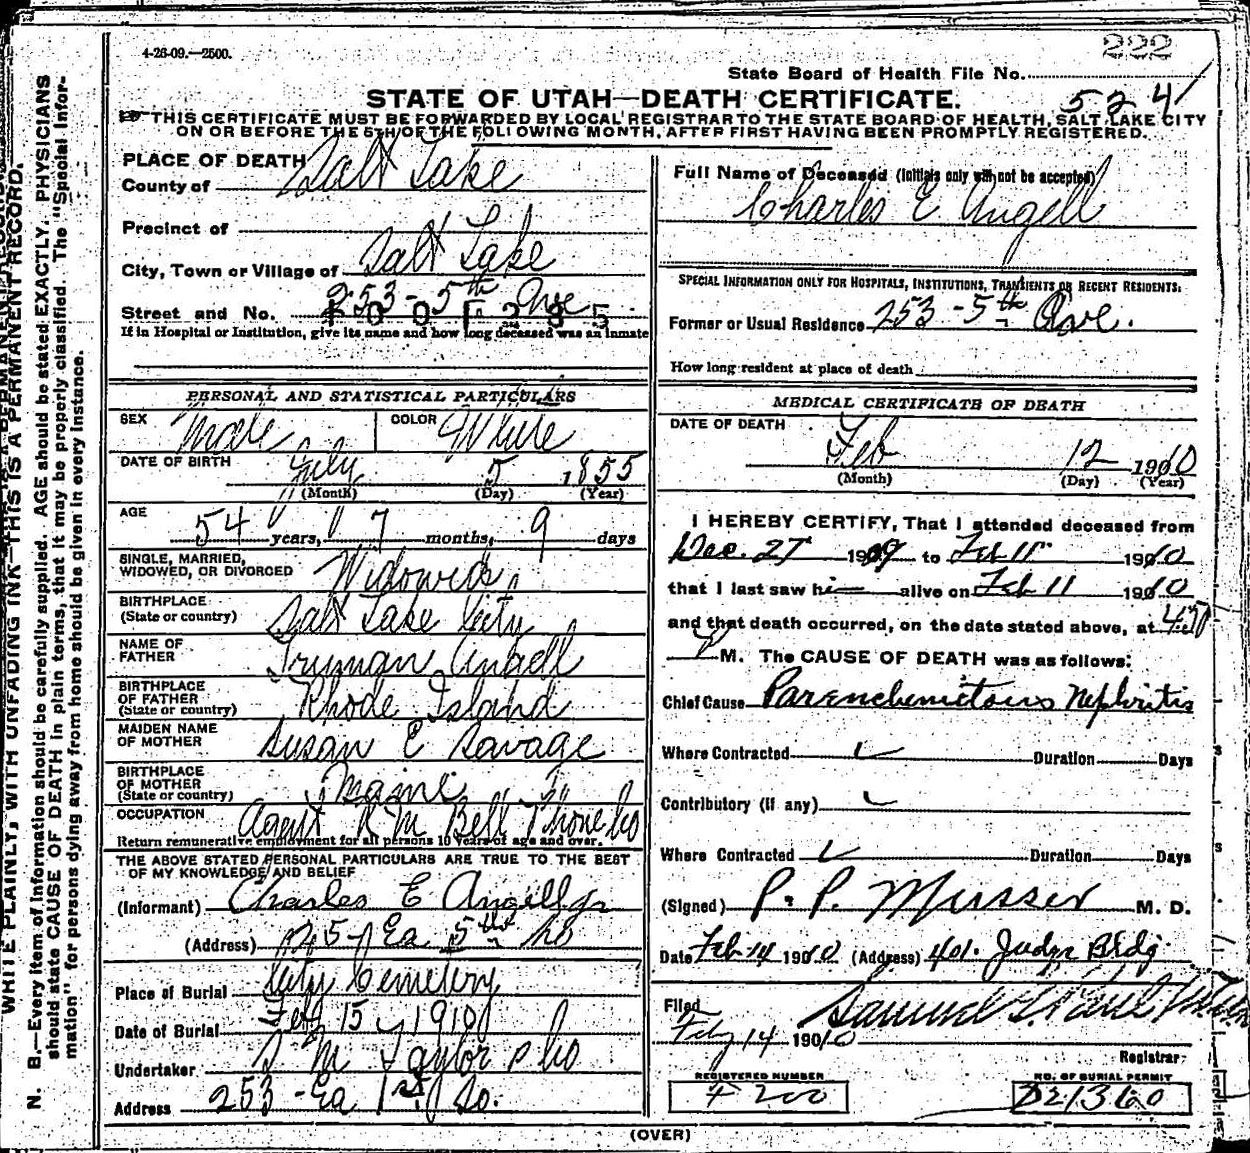 222
4-26-09.—2500.
State Board of Health File No.
524
STATE OF UTAH—DEATH CERTIFICATE.
THIS CERTIFICATE MUST BE FORWARDED BY LOCAL REGISTRAR TO THE STATE BOARD OF HEALTH, SALT LAKE CITY
ON OR BEFORE THE 5TH OF THE FOLLOWING MONTH, AFTER FIRST HAVING BEEN PROMPTLY REGISTERED.
PLACE OF DEATH
County of Salt Lake
Precinct of
City, Town or Village of Salt Lake
Street and No. 253 - 5th Ave
If in Hospital or Institution, give its name and how long deceased was an inmate
PERSONAL AND STATISTICAL PARTICULARS
SEX Male COLOR White
DATE OF BIRTH July 5 1855
(Month) (Day) (Year)
AGE
54 years, 7 months, 9 days
SINGLE, MARRIED,
WIDOWED, OR DIVORCED Widowed
BIRTHPLACE
(State or country) Salt Lake City
NAME OF
FATHER Truman Angell
BIRTHPLACE
OF FATHER
(State or country) Rhode Island
MAIDEN NAME
OF MOTHER Susan E Savage
BIRTHPLACE
OF MOTHER
(State or country) Maine
OCCUPATION Agent R M Bell Phone Co
Return remunerative employment for all persons 10 years of age and over.
THE ABOVE STATED PERSONAL PARTICULARS ARE TRUE TO THE BEST
OF MY KNOWLEDGE AND BELIEF
(Informant) Charles E Angell Jr
(Address)
Place of Burial City Cemetery
Date of Burial Feb 15 1910
Undertaker S M Taylor & Co
Address 253 - Ea 1st So.
Full Name of Deceased (Initials only will not be accepted)
Charles E Angell
SPECIAL INFORMATION ONLY FOR HOSPITALS, INSTITUTIONS, TRANSIENTS OR RECENT RESIDENTS:
Former or Usual Residence 253 - 5th Ave.
How long resident at place of death
MEDICAL CERTIFICATE OF DEATH
DATE OF DEATH
Feb 12 1910
(Month) (Day) (Year)
I HEREBY CERTIFY, That I attended deceased from
Dec. 27 1909 to Feb 11 1910
that I last saw hi— alive on Feb 11 1910
and that death occurred, on the date stated above, at
P M. The CAUSE OF DEATH was as follows:
Chief Cause Parenchemetous Nephritis
Where Contracted Duration Days
Contributory (if any)
Where Contracted Duration Days
(Signed) P. P. Musser M. D.
Date Feb 14 1910 (Address) 401. Judge Bldg.
Filed
Feby 14 1910 Samuel G. Paul
Registrar
REGISTERED NUMBER NO. OF BURIAL PERMIT
(OVER)
WRITE PLAINLY, WITH UNFADING INK—THIS IS A PERMANENT RECORD.
N. B.—Every item of information should be carefully supplied. AGE should be stated EXACTLY. PHYSICIANS
should state CAUSE OF DEATH in plain terms, that it may be properly classified. The "Special Infor-
mation" for persons dying away from home should be given in every instance.